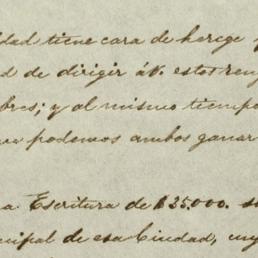 dad tiene cara de herege y
d de dirigir áV. estos reng
bres; y al mismo tiempo
podemos ambos ganar
a Escritura de $25.000. s
cipal de esa Ciudad, cuy